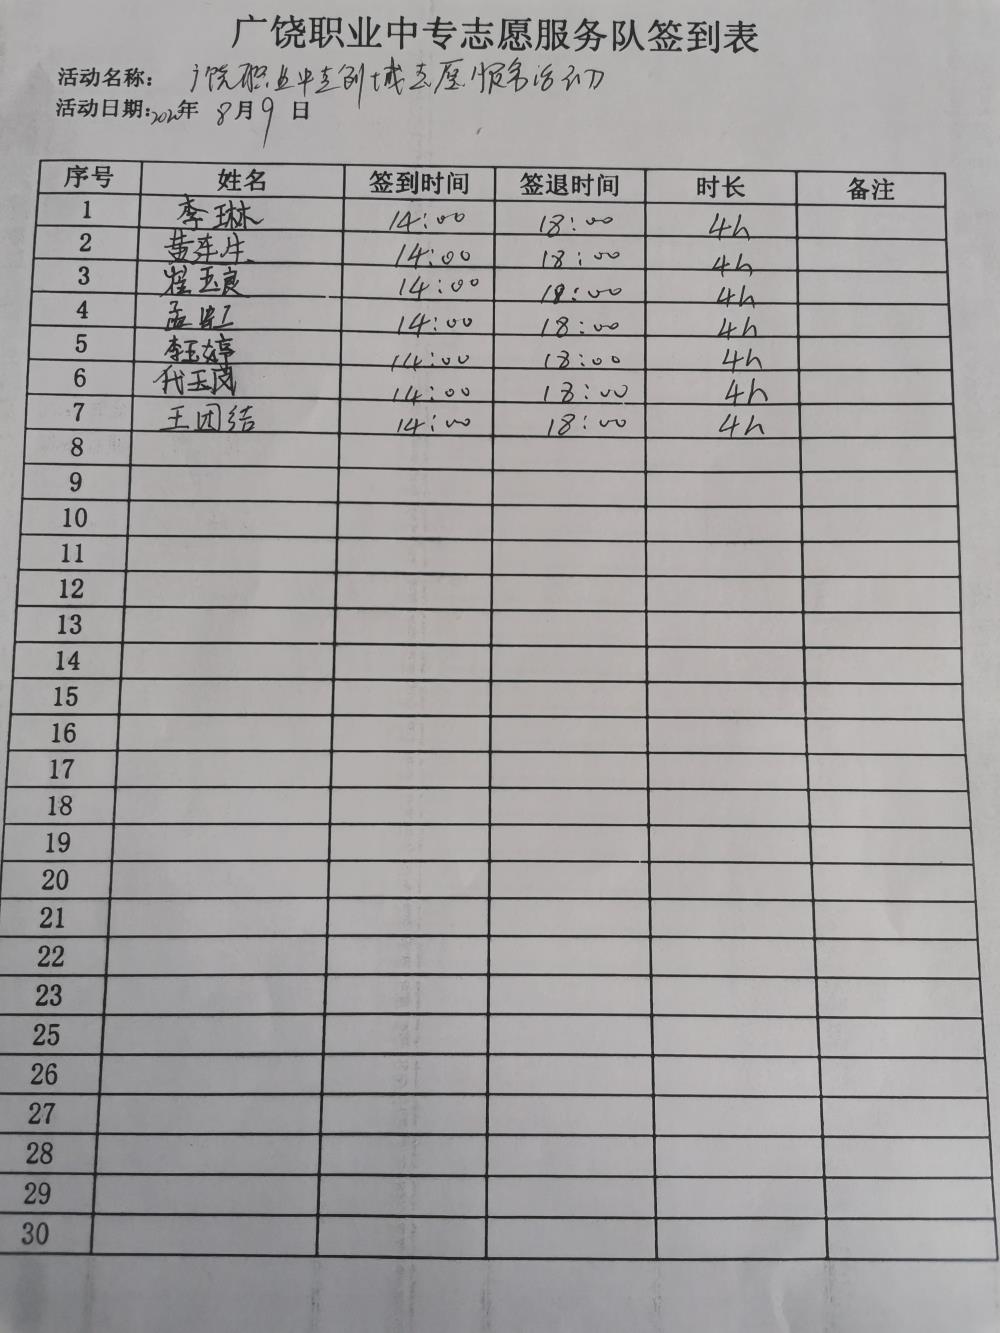 广饶职业中专志愿服务队签到表
活动名称： 广饶职业中专创城志愿服务活动
活动日期：2020年 8月9日
序号 姓名 签到时间 签退时间 时长 备注
1 李琳 14:00 18:00 4h
2 黄连生 14:00 18:00 4h
3 崔玉良 14:00 18:00 4h
4 孟 14:00 18:00 4h
5 李玉婷 14:00 18:00 4h
6 代玉岗 14:00 18:00 4h
7 王团结 14:00 18:00 4h
8
9
10
11
12
13
14
15
16
17
18
19
20
21
22
23
25
26
27
28
29
30